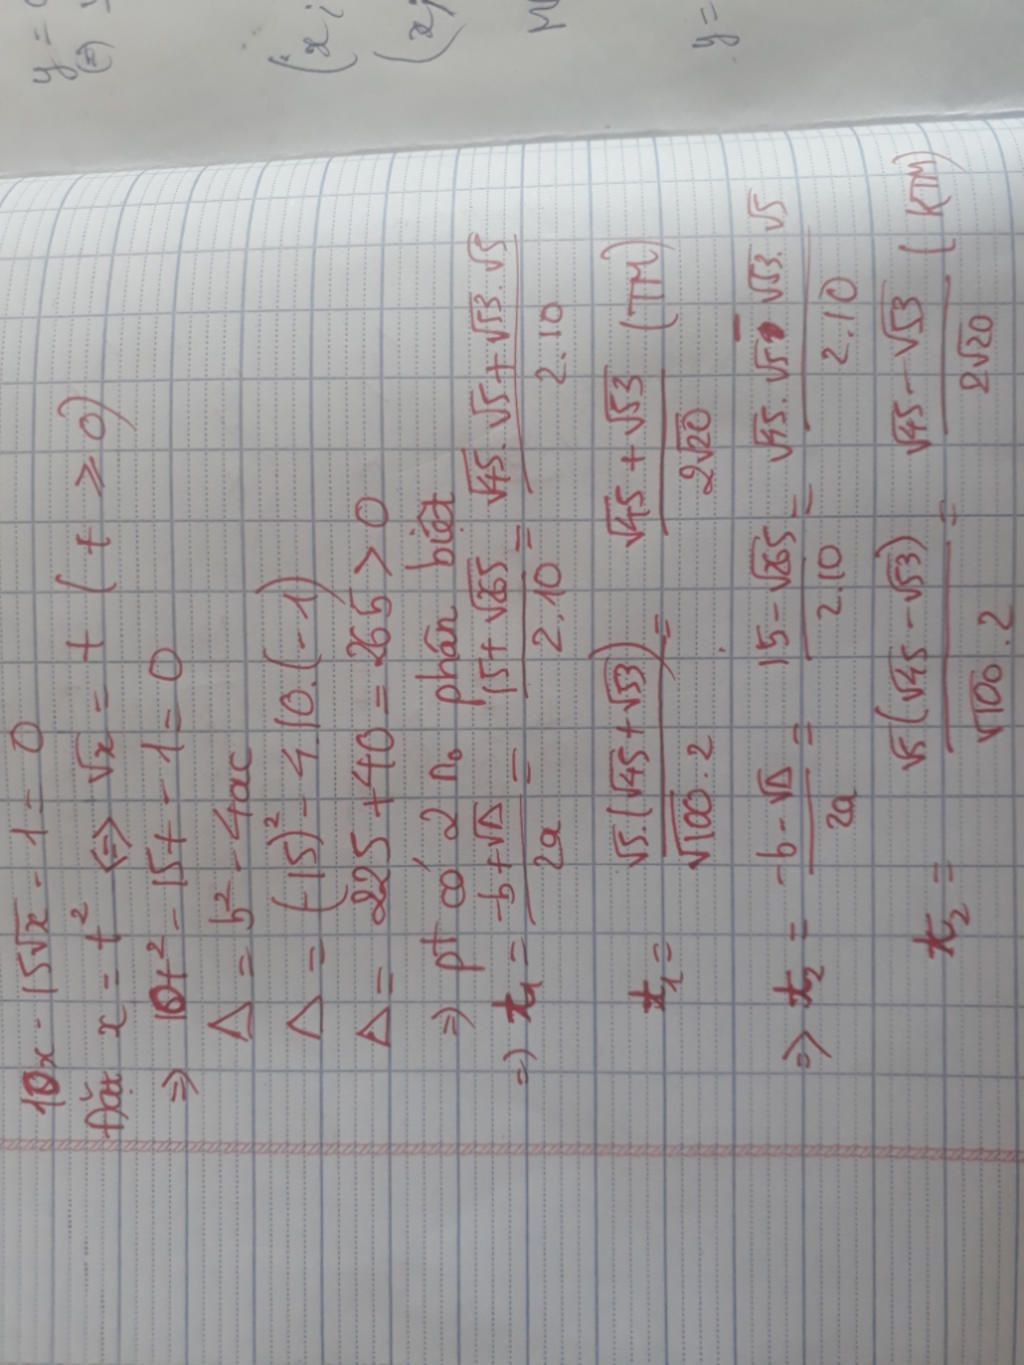 y =
(=)
(x;
(x;
y =
10x - 15√x - 1 = 0
Đặt x = t² <=> √x = t (t ≥ 0)
=> 10t² - 15t - 1 = 0
Δ = b² - 4ac
Δ = (-15)² - 4.10.(-1)
Δ = 225 + 40 = 265 > 0
=> pt có 2 n₀ phân biệt
=> t₁ = (-b + √Δ)/2a = (15 + √265)/2.10 = (√45.√5 + √53.√5)/2.10
t₁ = √5.(√45 + √53)/√100.2 = (√45 + √53)/2√20 (TM)
=> t₂ = (-b - √Δ)/2a = (15 - √265)/2.10 = (√45.√5 - √53.√5)/2.10
t₂ = √5(√45 - √53)/√100.2 = (√45 - √53)/2√20 (KTM)